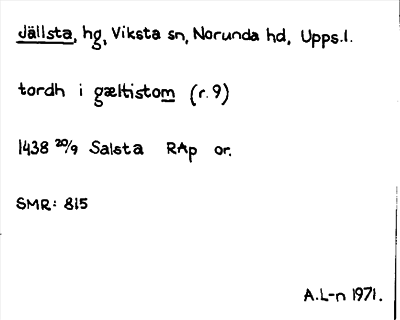 Jällsta, hg, Viksta sn, Norunda hd, Upps.l.
tordh i gæltistom (r. 9)
1438 20/9 Salsta RAp or.
SMR: 815
A.L-n 1971.